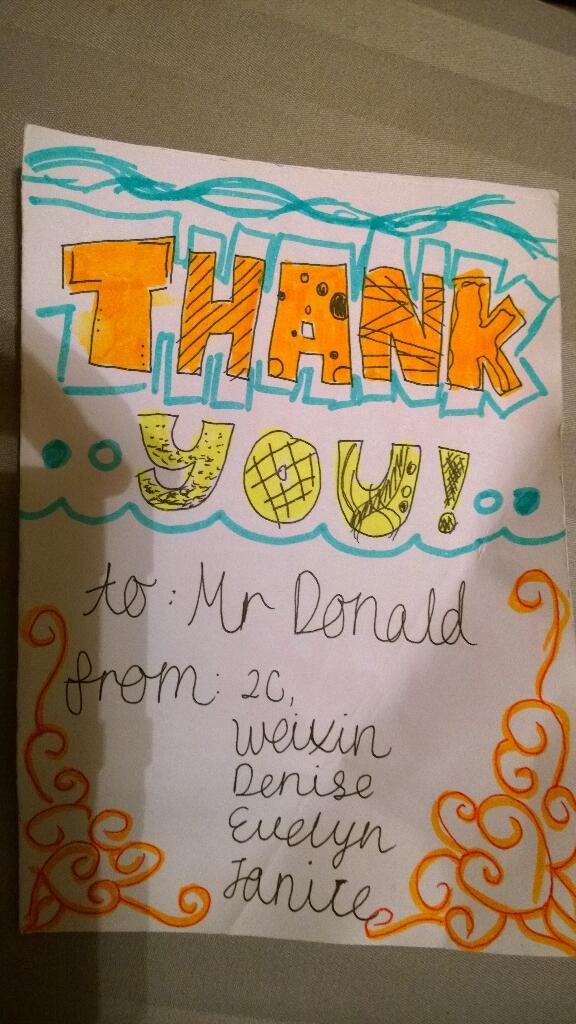 THANK
YOU!
to: Mr Donald
from: 2C,
Weixin
Denise
Evelyn
Janice